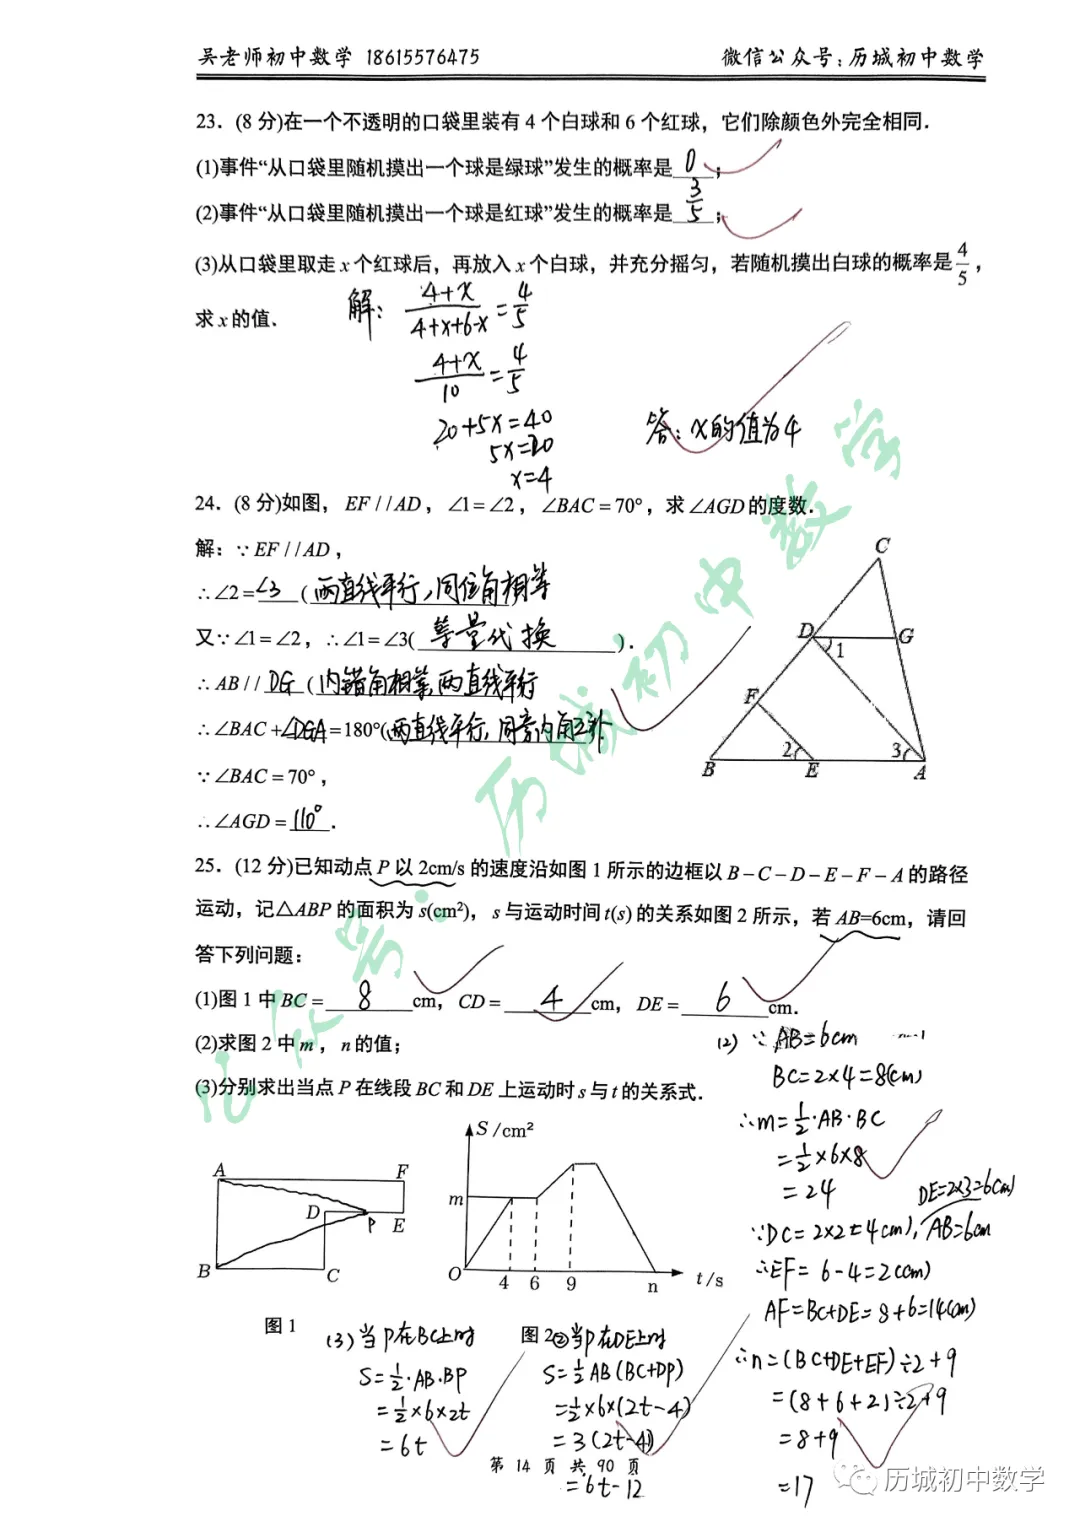 吴老师初中数学 18615576475 微信公众号:历城初中数学
23．(8 分)在一个不透明的口袋里装有 4 个白球和 6 个红球，它们除颜色外完全相同.
(1)事件“从口袋里随机摸出一个球是绿球”发生的概率是 0 ；
(2)事件“从口袋里随机摸出一个球是红球”发生的概率是 3/5 ；
(3)从口袋里取走 x 个红球后，再放入 x 个白球，并充分摇匀，若随机摸出白球的概率是 4/5，
求 x 的值.
解: (4+x)/(4+x+6-x) = 4/5
(4+x)/10 = 4/5
20+5x=40
5x=20
x=4
答: x的值为4
24．(8 分)如图， EF//AD，∠1=∠2，∠BAC=70°，求∠AGD的度数.
解：∵EF//AD，
∴∠2=∠3 (两直线平行,同位角相等
又∵∠1=∠2，∴∠1=∠3( 等量代换 ).
∴AB// DG (内错角相等,两直线平行
∴∠BAC+∠DGA=180°(两直线平行,同旁内角互补
∵∠BAC=70°，
∴∠AGD= 110° .
C
D
G
1
F
2
3
B
E
A
25．(12 分)已知动点 P 以 2cm/s 的速度沿如图 1 所示的边框以 B-C-D-E-F-A 的路径
运动，记△ABP 的面积为 s(cm²)，s 与运动时间 t(s) 的关系如图 2 所示，若 AB=6cm，请回
答下列问题：
(1)图 1 中 BC= 8 cm，CD= 4 cm，DE= 6 cm.
(2)求图 2 中 m，n 的值；
(3)分别求出当点 P 在线段 BC 和 DE 上运动时 s 与 t 的关系式.
A
F
D
P
E
B
C
图 1
S/cm²
m
O
4
6
9
n
t/s
图 2
(2) ∵ AB=6cm
BC=2×4=8(cm)
∴m=1/2·AB·BC
=1/2×6×8
=24
DE=2×3=6(cm)
∵DC=2×2=4(cm), AB=6cm
∴EF=6-4=2(cm)
AF=BC+DE=8+6=14(cm)
∴n=(BC+DE+EF)÷2+9
=(8+6+2)÷2+9
=8+9
=17
(3) 当P在BC上时
S=1/2·AB·BP
=1/2×6×2t
=6t
②当P在DE上时
S=1/2AB(BC+DP)
=1/2×6×(2t-4)
=3(2t-4)
=6t-12
第 14 页 共 90 页
公众号:历城初中数学
历城初中数学